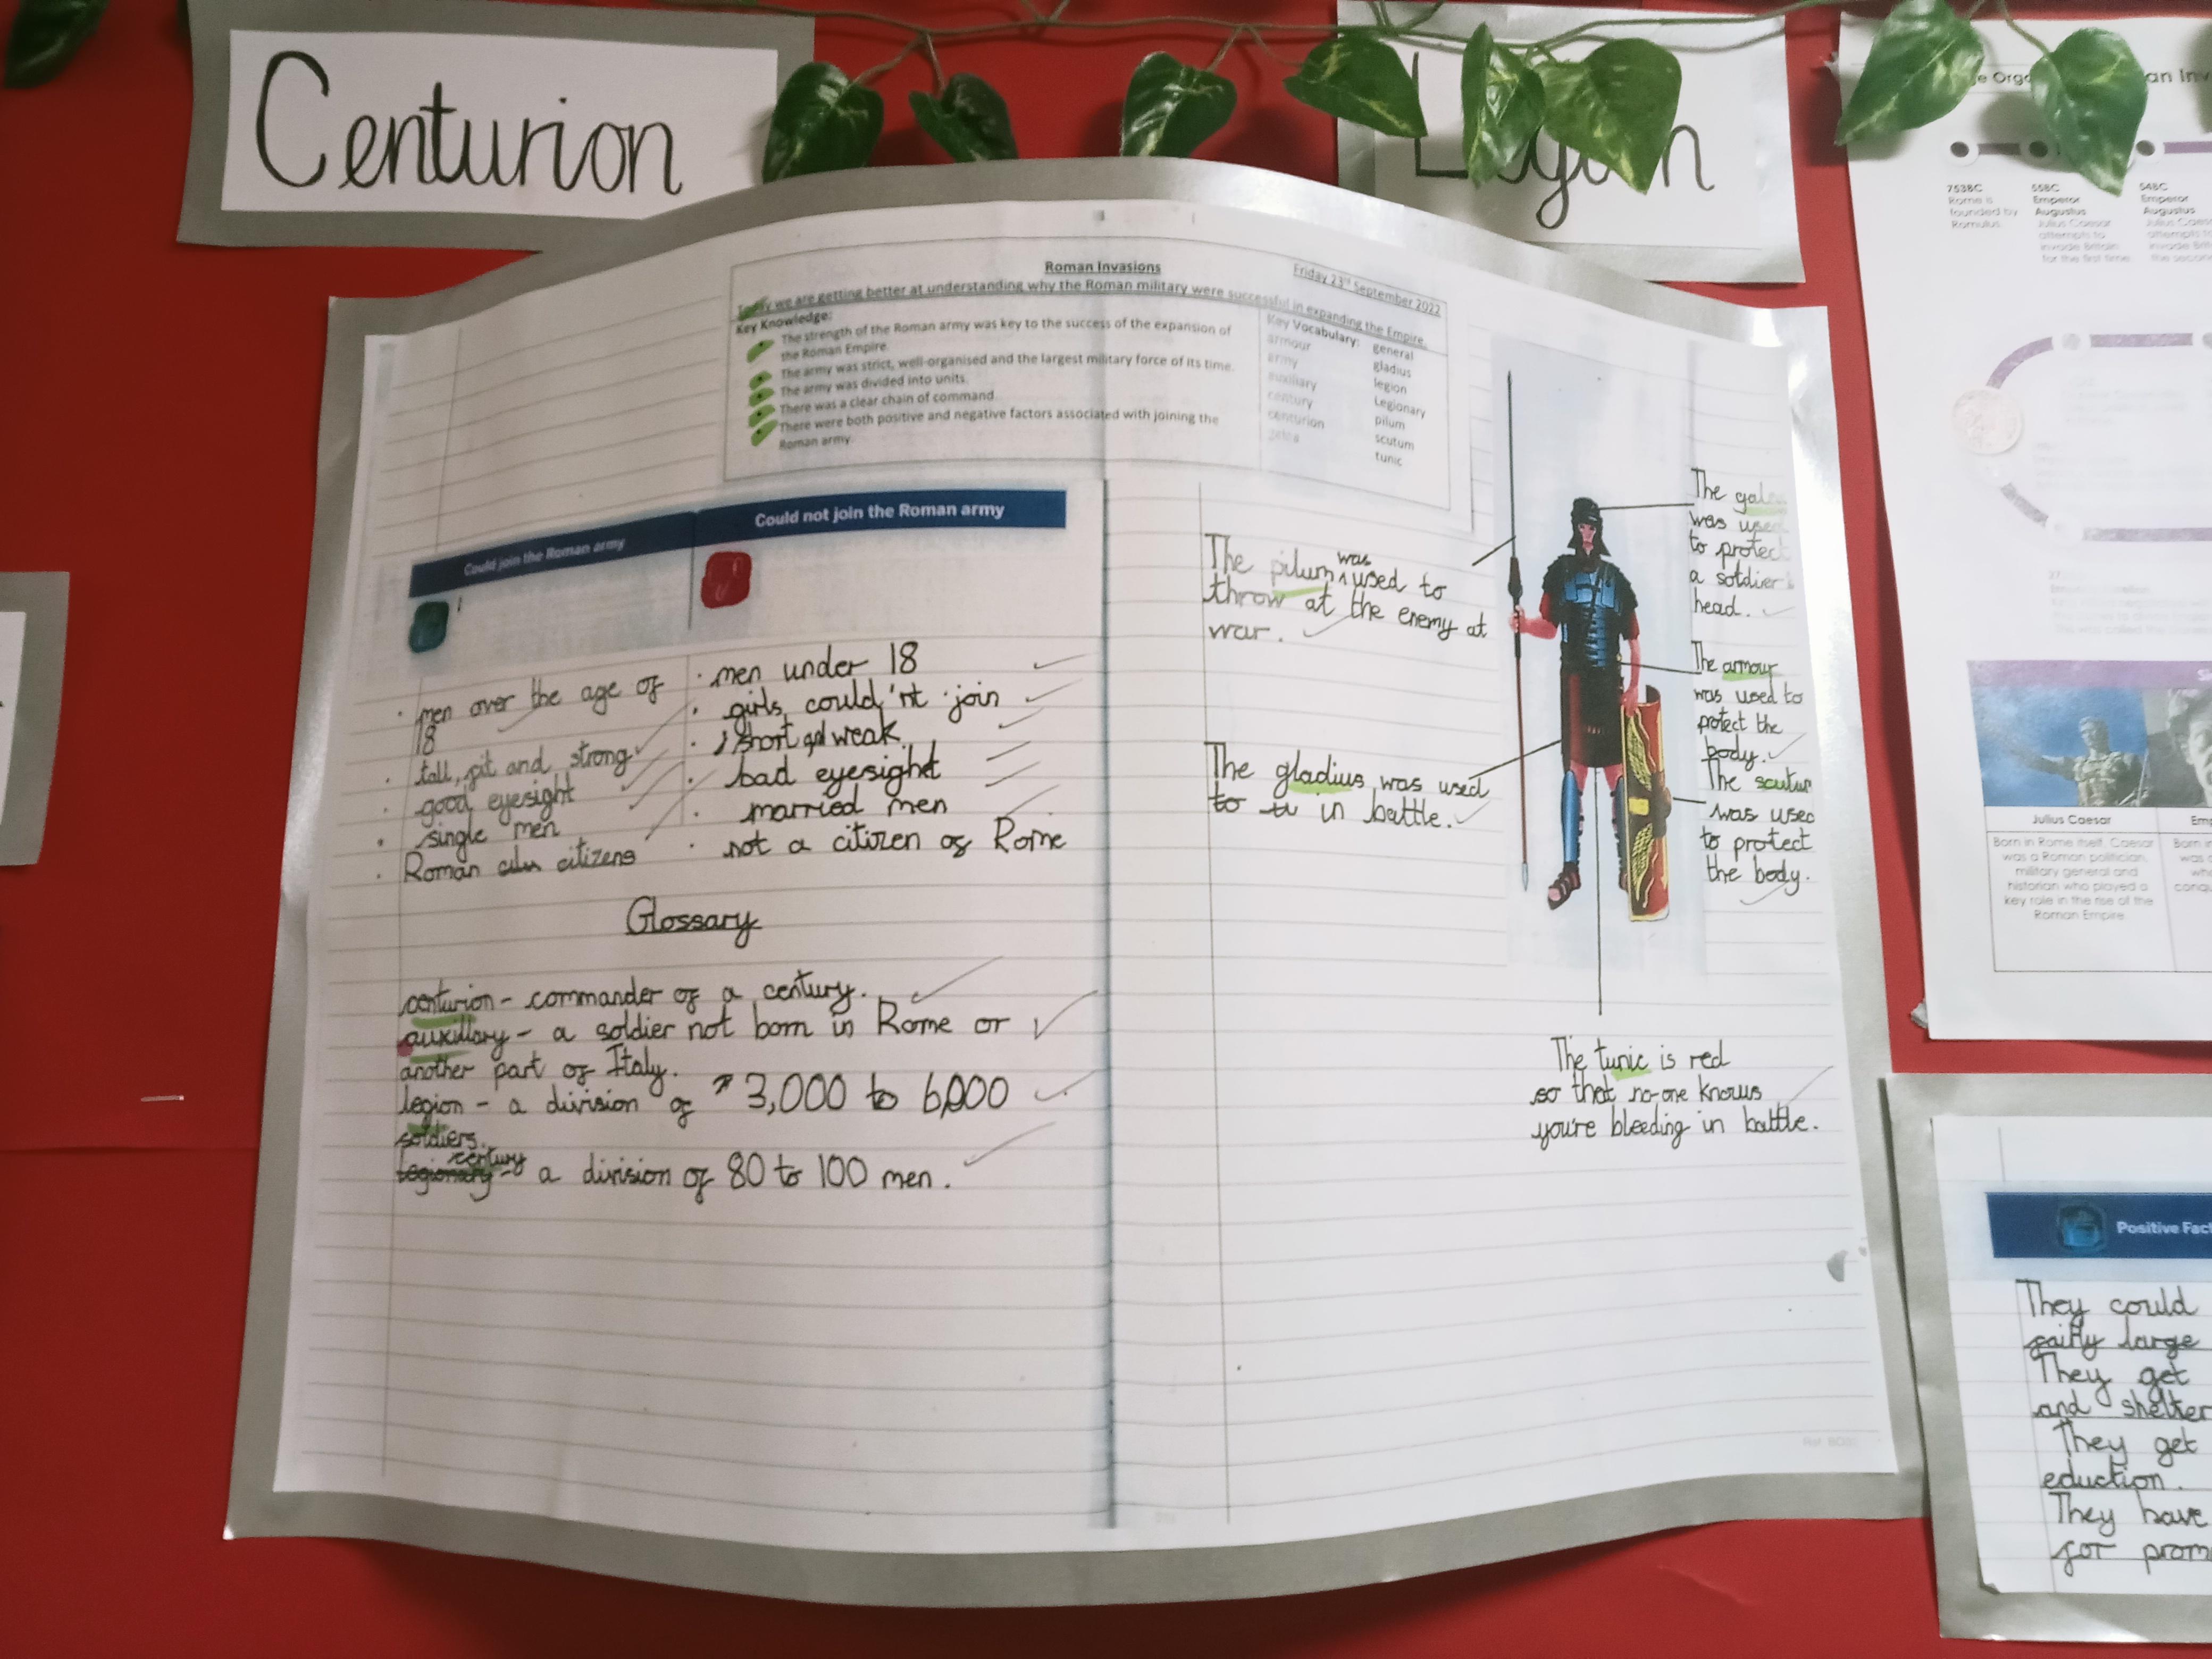 Centurion
753BC
Rome is
founded by
Romulus
55BC
Emperor
Augustus
Julius Caesar
attempts to
invade Britain
for the first time
54BC
Emperor
Augustus
Roman Invasions
Friday 23rd September 2022
Today we are getting better at understanding why the Roman military were successful in expanding the Empire.
Key Knowledge:
The strength of the Roman army was key to the success of the expansion of
the Roman Empire.
The army was strict, well-organised and the largest military force of its time.
The army was divided into units.
There was a clear chain of command.
There were both positive and negative factors associated with joining the
Roman army.
Key Vocabulary:
armour
army
auxiliary
century
centurion
galea
general
gladius
legion
Legionary
pilum
scutum
tunic
Could join the Roman army
Could not join the Roman army
men over the age of
18
tall, fit and strong
good eyesight
single men
Roman citizens
men under 18
girls could'nt join
short and weak
bad eyesight
married men
not a citizen of Rome
Glossary
centurion - commander of a century.
auxillary - a soldier not born in Rome or
another part of Italy.
legion - a division of 3,000 to 6,000
soldiers.
century
legionary - a division of 80 to 100 men.
The pilum was used to
throw at the enemy at
war.
The gladius was used
to in battle.
The galea
was used
to protect
a soldier's
head.
The armour
was used to
protect the
body.
The scutum
was used
to protect
the body.
The tunic is red
so that no-one knows
you're bleeding in battle.
Julius Caesar
Born in Rome itself, Caesar
was a Roman politician,
military general and
historian who played a
key role in the rise of the
Roman Empire.
Positive Fac
They could
fairly large
They get
and shelter
They get
eduction.
They have
for prom